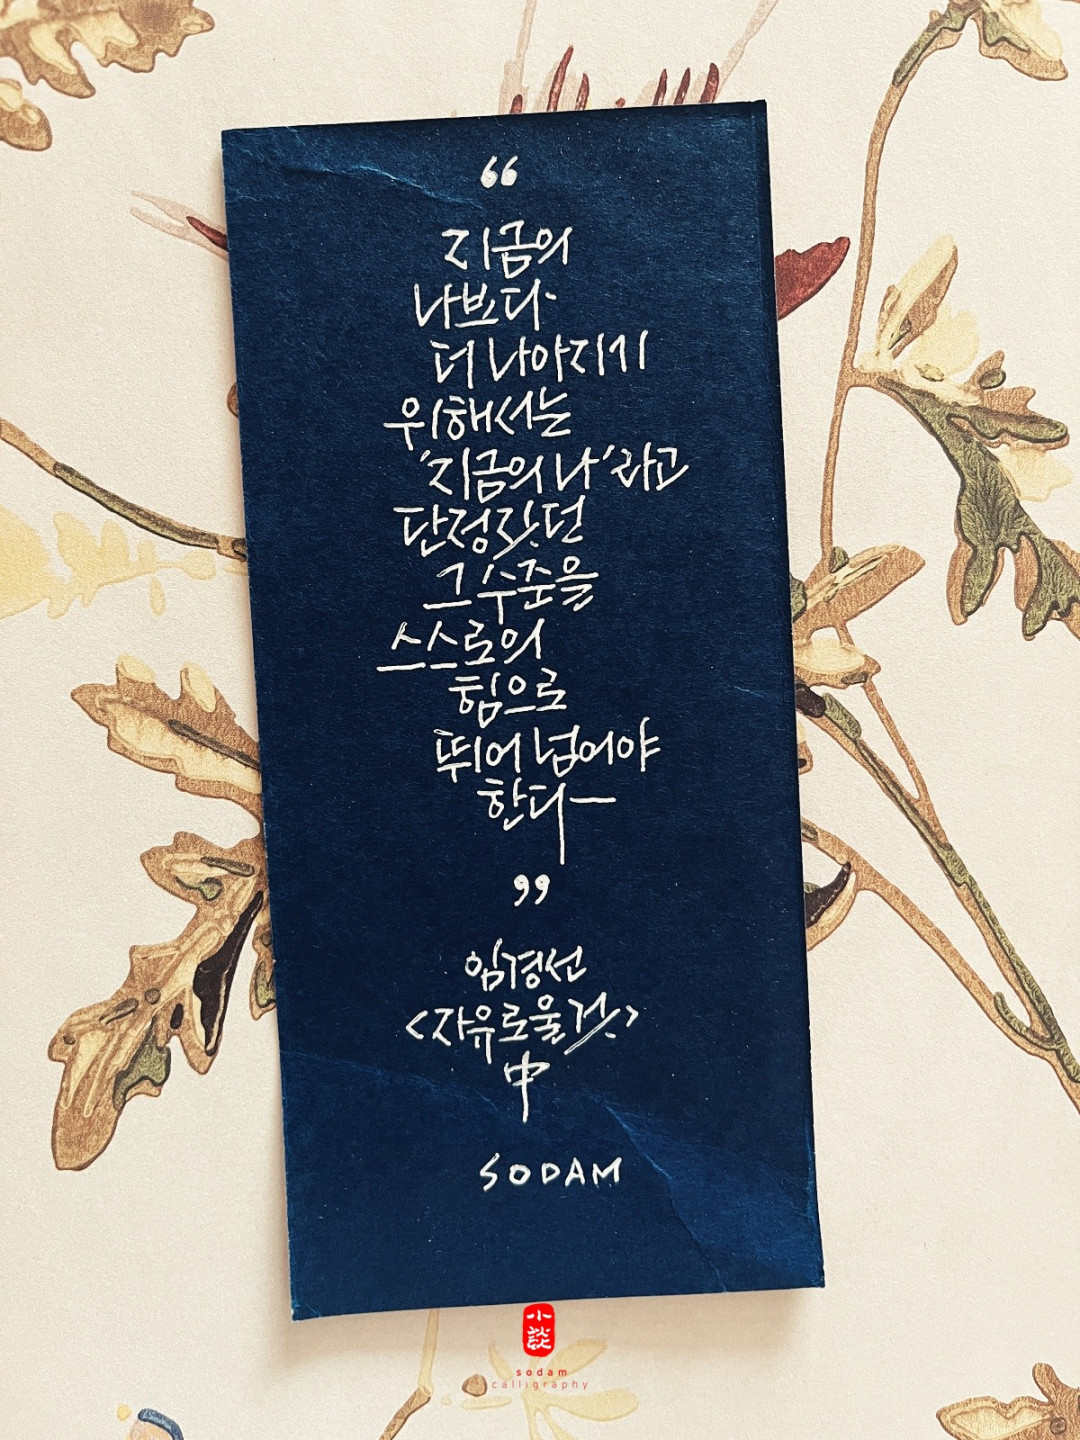 “
지금의
나보다
더 나아지기
위해서는
'지금의 나'라고
단정짓던
그 수준을
스스로의
힘으로
뛰어 넘어야
한다
”
임경선
<자유로울 것>
中
SODAM
小談
sodam
calligraphy